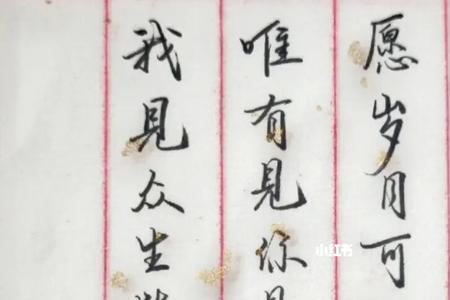 愿岁月可
唯有见你
我见众生
小红书